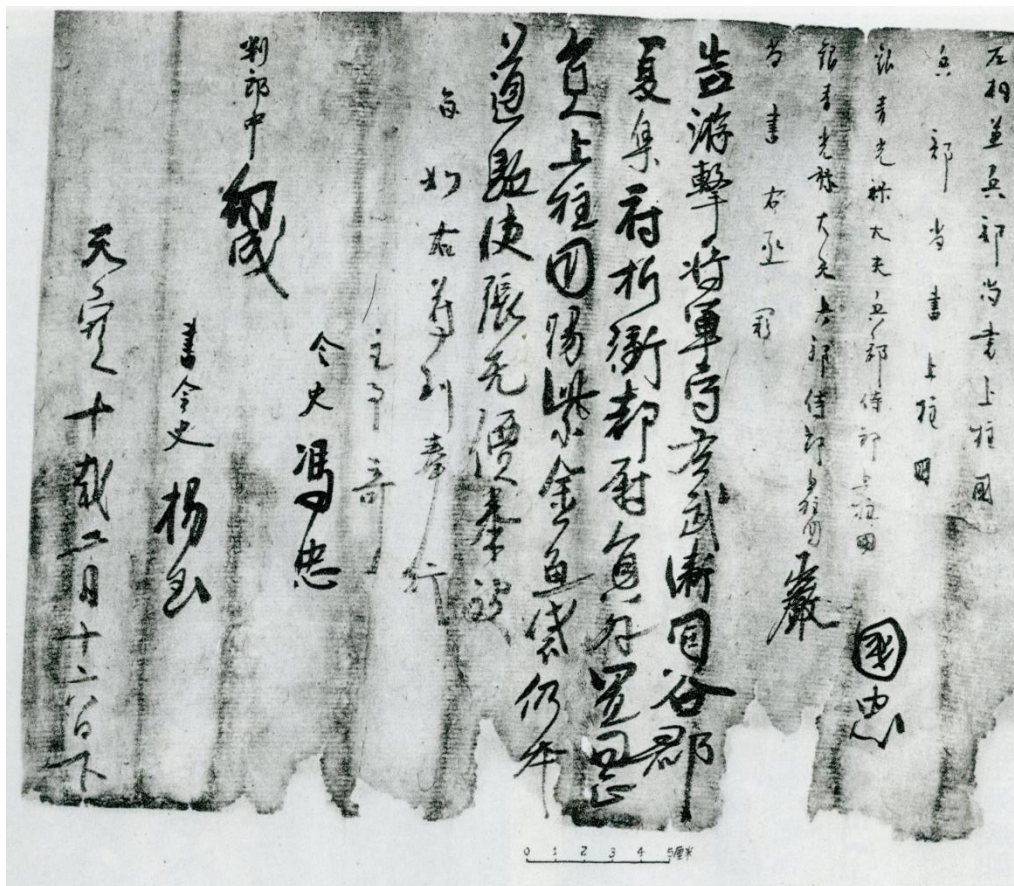 左相兼兵部尚書上柱國
兵部尚書上柱国
銀青光祿大夫兵部侍郎上柱国 國忠
銀青光祿大夫兵部侍郎上柱国 巖
尚書右丞
告游擊將軍守左武衛同谷郡
夏集府折衝都尉員外置同正
員上柱国賜紫金魚袋仍本
道驅使張无價奉被
旨如右符到奉行
主事 奇
判郎中
令史 馮忠
書令史 楊玉
天寶十載二月十二日下
0 1 2 3 4 5厘米